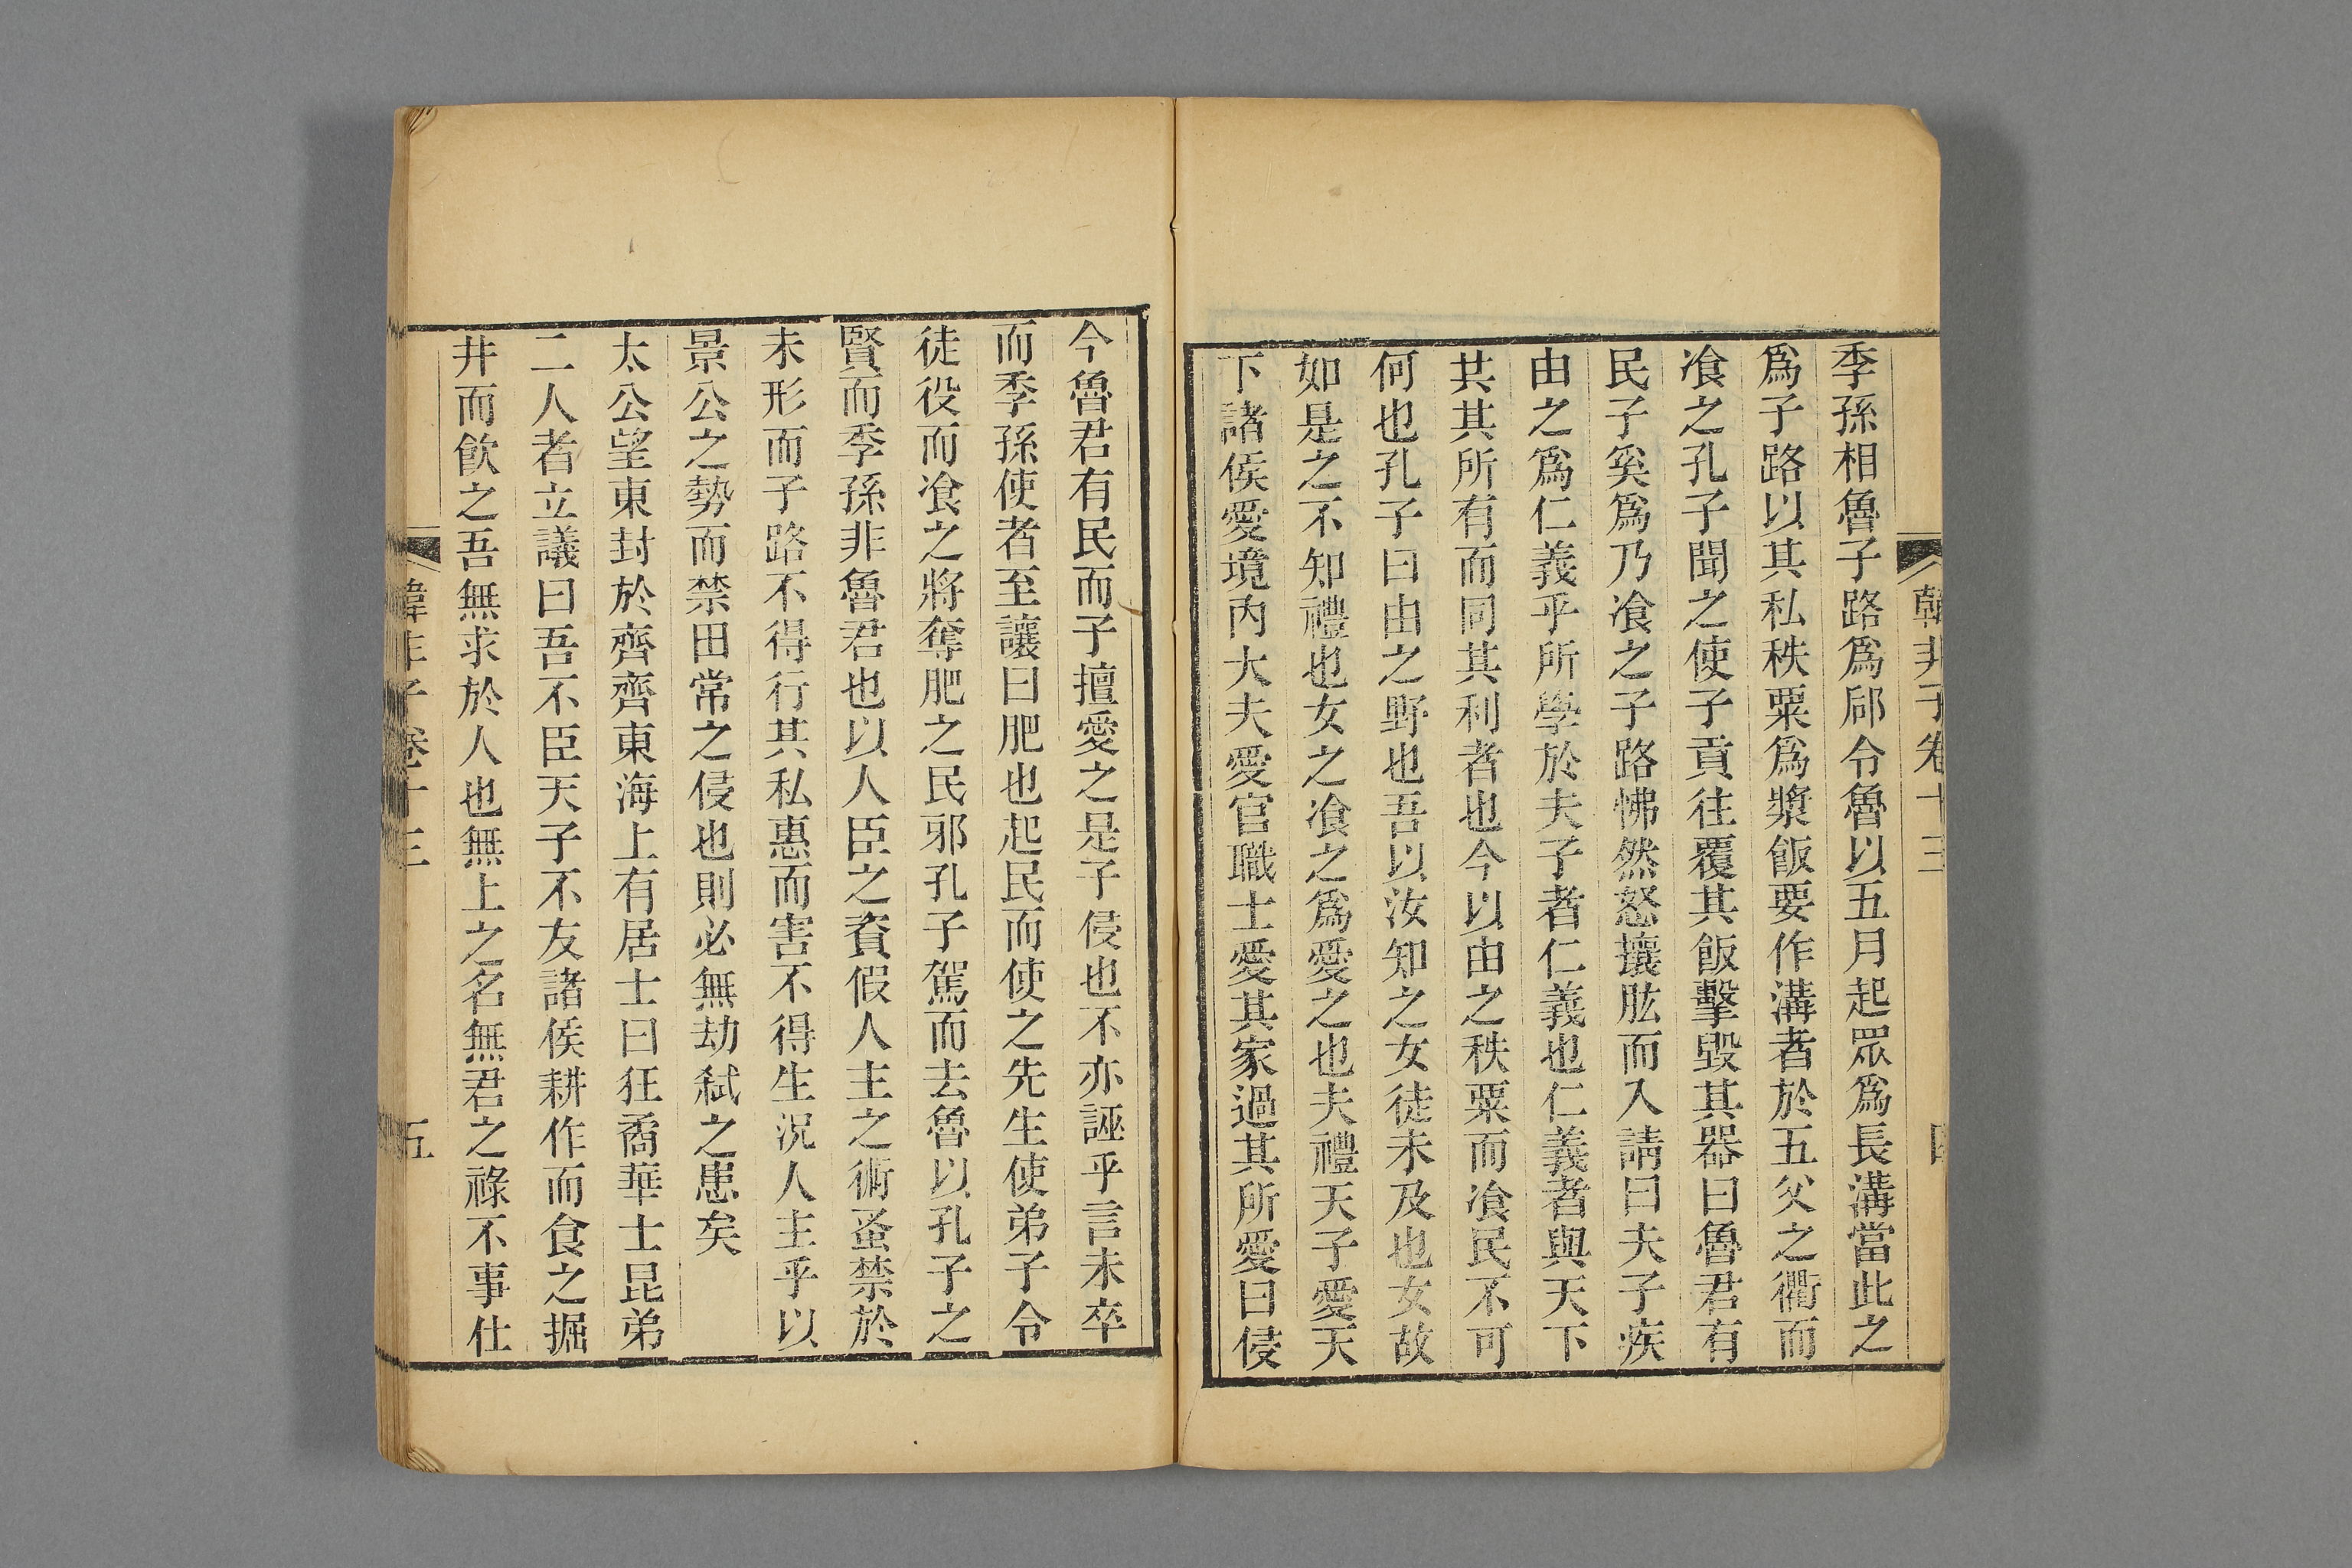 韓非子卷十三
季孫相魯子路爲郈令魯以五月起眾爲長溝當此之
爲子路以其私秩粟爲漿飯要作溝者於五父之衢而
飡之孔子聞之使子貢往覆其飯擊毀其器曰魯君有
民子奚爲乃飡之子路怫然怒攘肱而入請曰夫子疾
由之爲仁義乎所學於夫子者仁義也仁義者與天下
共其所有而同其利者也今以由之秩粟而飡民不可
何也孔子曰由之野也吾以汝知之女徒未及也女故
如是之不知禮也女之飡之爲愛之也夫禮天子愛天
下諸侯愛境內大夫愛官職士愛其家過其所愛曰侵
今魯君有民而子擅愛之是子侵也不亦誣乎言未卒
而季孫使者至讓曰肥也起民而使之先生使弟子令
徒役而飡之將奪肥之民邪孔子駕而去魯以孔子之
賢而季孫非魯君也以人臣之資假人主之術蚤禁於
未形而子路不得行其私惠而害不得生況人主乎以
景公之勢而禁田常之侵也則必無劫弒之患矣
太公望東封於齊齊東海上有居士曰狂矞華士昆弟
二人者立議曰吾不臣天子不友諸侯耕作而食之掘
井而飲之吾無求於人也無上之名無君之祿不事仕
韓非子卷十三
五